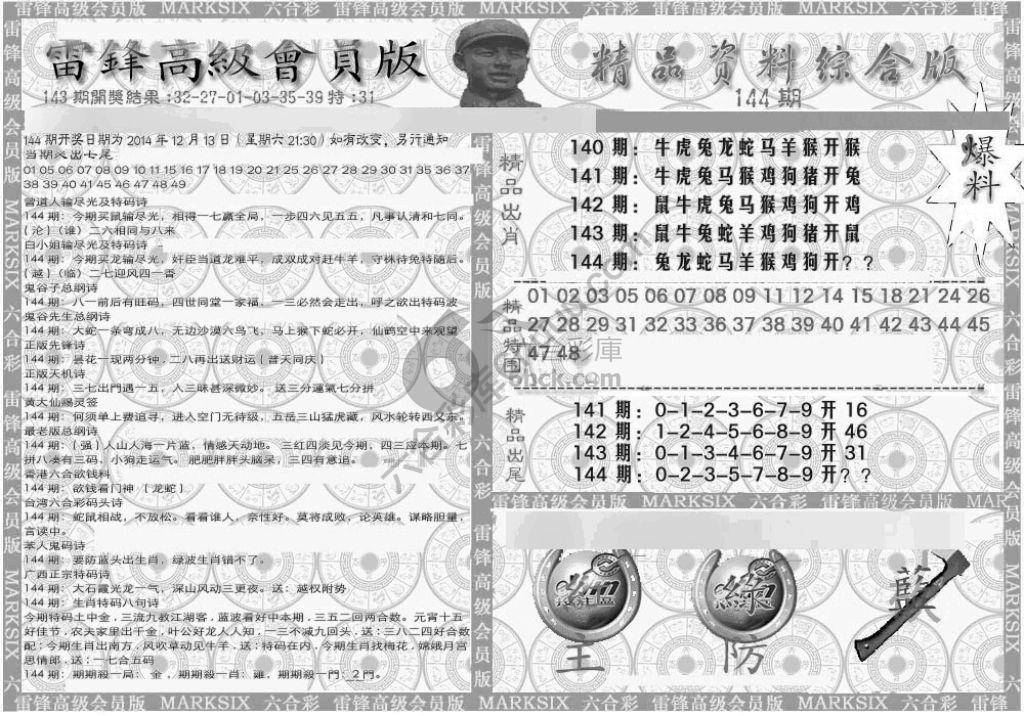 雷锋高级会员版 MARKSIX 六合彩 雷锋高级会员版 MARKSIX 六合彩 雷锋高级会员版 MARKSIX 六合彩
雷鋒高級會員版
143期開獎結果:32-27-01-03-35-39特:31
精品资料综合版
144期
144期开奖日期为2014年12月13日(星期六21:30)如有改变,另行通知
当期必出七尾
01 05 06 07 08 09 10 11 15 16 17 18 19 20 21 25 26 27 28 29 30 31 35 36 37
38 39 40 41 45 46 47 48 49
曾道人输尽光及特码诗
144期:今期买鼠输尽光,相得一七赢全局,一步四六见五五,凡事认清和七同。
(沦)(谁)二六相同与八来
白小姐输尽光及特码诗
144期:今期买龙输尽光,奸臣当道龙难平,成双成对赶牛羊,守株待兔特随后。
(越)(临)二七迎风四一香
鬼谷子总纲诗
144期:八一前后有旺码,四世同堂一家福,一三必然会走出,呼之欲出特码波
鬼谷先生总纲诗
144期:大蛇一条弯成八,无边沙漠六鸟飞,马上猴下蛇必开,仙鹤空中来观望
正版先锋诗
144期:昙花一现两分钟,二八再出送财运(普天同庆)
正版天机诗
144期:三七出門遇一五,人三昧甚深微妙。送三分運氣七分拼
黄大仙赐灵签
144期:何须单上费追寻,进入空门无待级,五岳三山猛虎藏,风水轮转西又东。
最老版总纲诗
144期:(强)人山人海一片蓝,情感天动地。三红四淡见今期,四三应本期。七
拼八凑有三码,小狗走运气。肥肥胖胖头脑呆,三四有意追。
香港六合欲钱料
144期:欲钱看门神(龙蛇)
台湾六合彩码头诗
144期:蛇鼠相战,不放松。看看谁人,奈性好。莫将成败,论英雄。谋略胆量,
言读中。
苯人鬼码诗
144期:要防蓝头出生肖,绿波生肖错不了。
广西正宗特码诗
144期:大石霞光龙一气,深山风动三更夜。送:越权附势
144期:生肖特码八句诗
今期特码土中金,三流九教江湖客,蓝波看好中本期,三五二回两合数。元宵十五
好佳节,农夫家里出千金,叶公好龙人人知,一三不减九回头,送:三八二四好合数
配:今期生肖出南方,风吹草动见牛羊,送:特码在内,今期生肖找梅花,嫦娥月宫
思情郎,送:一七合五码
144期:期期殺一局:金,期期殺一肖:雞,期期殺一門:2門。
精品出肖
140期:牛虎兔龙蛇马羊猴开猴
141期:牛虎兔马猴鸡狗猪开兔
142期:鼠牛虎兔马猴鸡狗开鸡
143期:鼠牛兔蛇羊鸡狗猪开鼠
144期:兔龙蛇马羊猴鸡狗开??
爆料
精品特围
01 02 03 05 06 07 08 09 11 12 14 15 18 21 24 26
27 28 29 31 32 33 36 37 38 39 40 41 42 43 44 45
47 48
精品出尾
141期:0-1-2-3-6-7-9开16
142期:1-2-4-5-6-8-9开46
143期:0-1-3-4-6-7-9开31
144期:0-2-3-5-7-8-9开??
雷锋高级会员版 MARKSIX 六合彩 雷锋高级会员版 MARKSIX
主
綠
防
藍
雷锋高级会员版 MARKSIX 六合彩 雷锋高级会员版 MARKSIX 六合彩 雷锋高级会员版 MARKSIX 六合彩